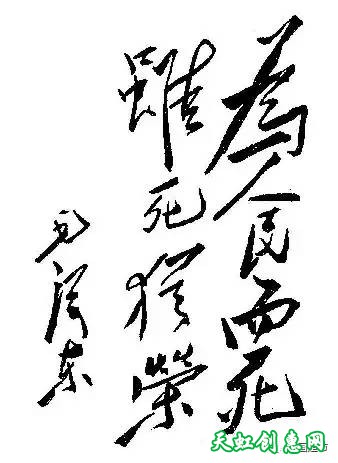 為人民而死
雖死猶榮
毛泽东
天虹创意网